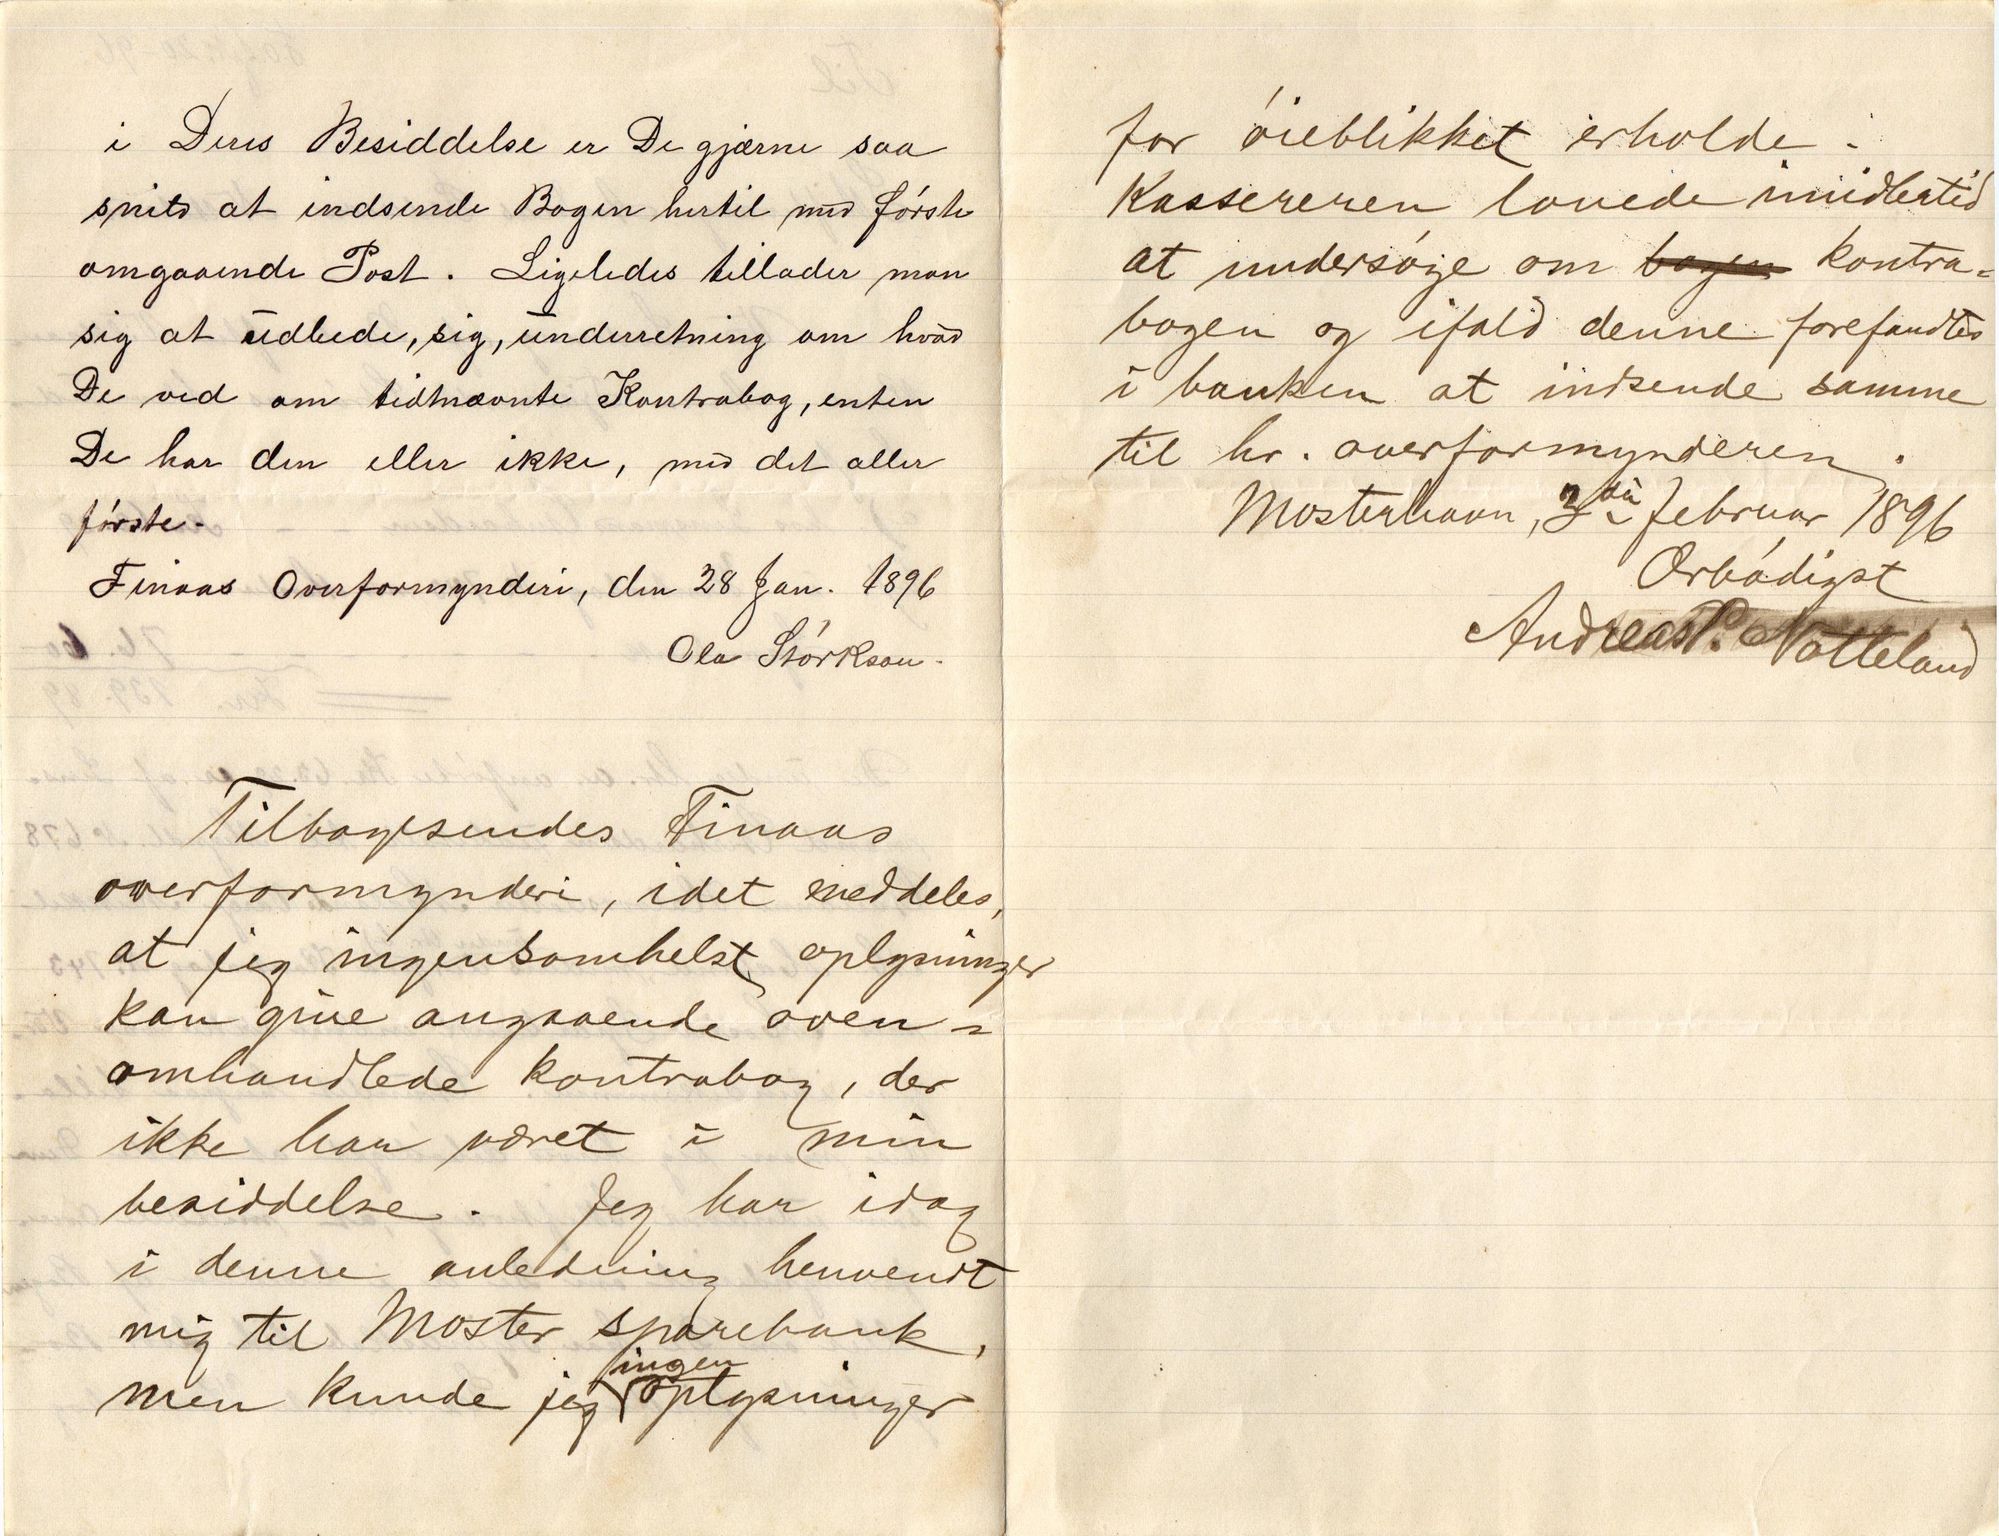 i Deres Besiddelse er De gjærne saa
snild at indsende Bogen hertil med første
omgaaende Post. Ligeledes tillader man
sig at udbede, sig, underretning om hvad
De ved om tidtnævnte Kontrabog, enten
De har den eller ikke, med det aller
første.
Finaas Overformynderi, den 28 Jan. 1896
Ola Størkson.
Tilbagesendes Finaas
overformynderi, idet meddeles,
at jeg ingensomhelst oplysninger
kan give angaaende oven=
omhandlede kontrabog, der
ikke har været i min
besiddelse. Jeg har idag
i denne anledning henvendt
mig til Moster sparebank,
men kunde jeg ingen oplysninger
for øieblikket erholde.
Kassereren lovede imidlertid
at undersøge om bogen kontra=
bogen og ifald denne forefandtes
i banken at indsende samme
til hr. overformynderen.
Mosterhavn, 3die februar 1896
Ærbødigst
Andreas P. Notteland